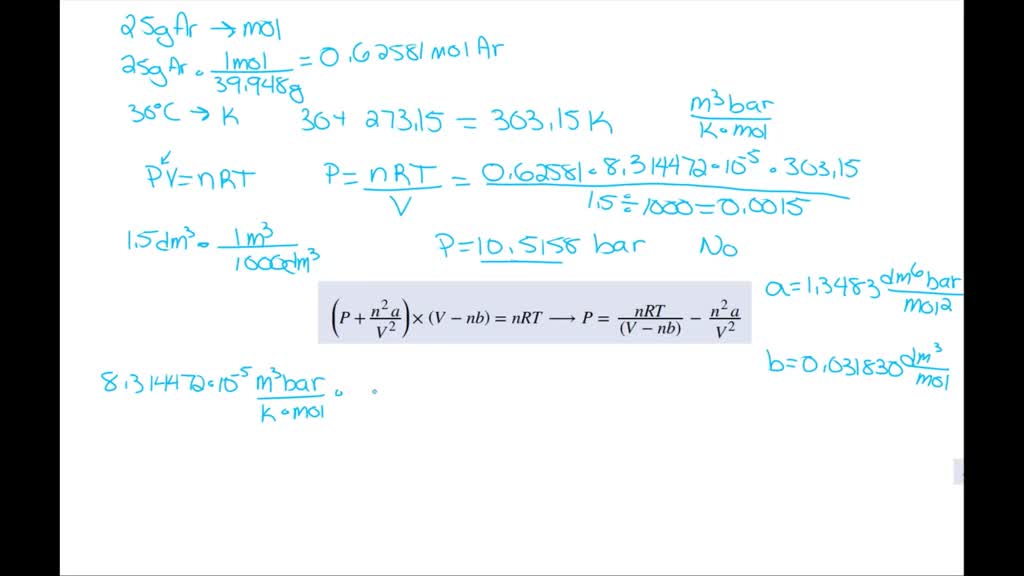 25gAr → mol
25gAr • 1mol / 39.948g = 0.62581 mol Ar
30°C → K 30+ 273,15 = 303,15 K m³bar / K•mol
PV=nRT P= nRT / V = 0.62581•8,314472•10⁻⁵•303,15 / 1.5÷1000=0.0015
1.5dm³• 1m³ / 1000dm³ P=10.5158 bar No
a=1,3483 dm⁶bar / mol²
(P + n²a / V²) × (V − nb) = nRT ⟶ P = nRT / (V − nb) − n²a / V²
b=0,031830 dm³ / mol
8,314472•10⁻⁵ m³bar / K•mol •